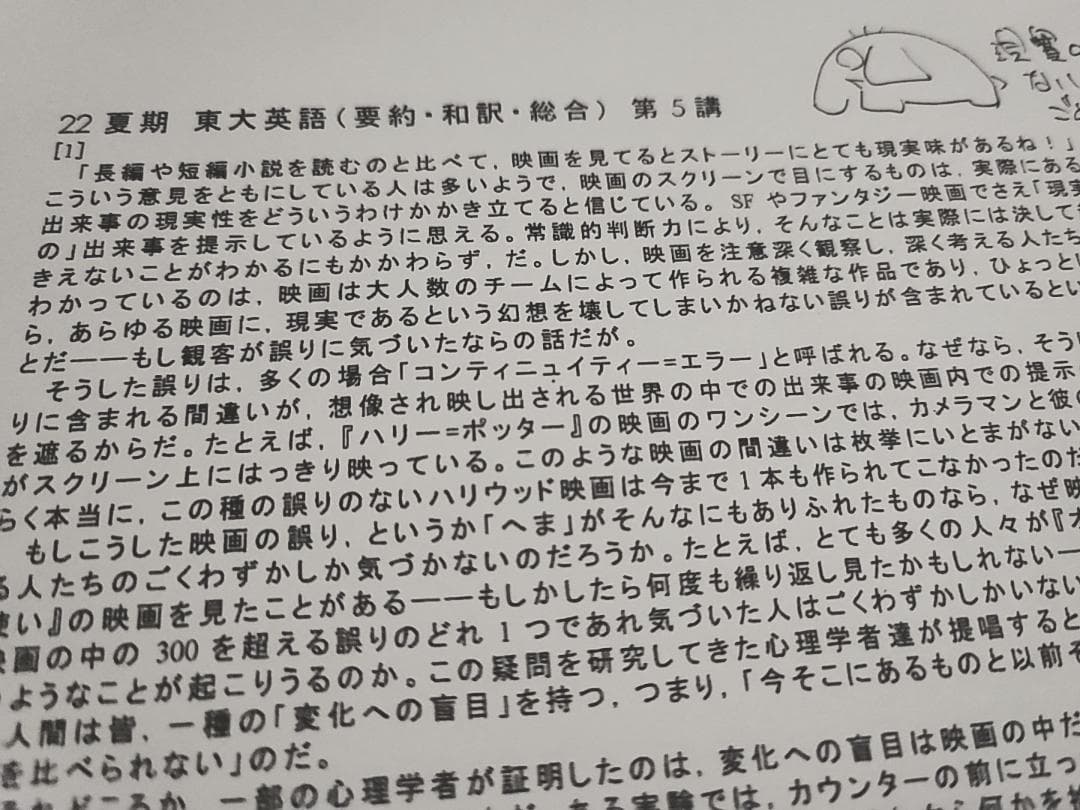 22 夏期 東大英語(要約・和訳・総合) 第5講
現実の
ない
[1]
「長編や短編小説を読むのと比べて，映画を見てるとストーリーにとても現実味があるね！」
こういう意見をともにしている人は多いようで，映画のスクリーンで目にするものは，実際にある
出来事の現実性をどういうわけかかき立てると信じている。SFやファンタジー映画でさえ「現実
の」出来事を提示しているように思える。常識的判断力により，そんなことは実際には決して
きえないことがわかるにもかかわらず，だ。しかし，映画を注意深く観察し，深く考える人たち
わかっているのは，映画は大人数のチームによって作られる複雑な作品であり，ひょっと
ら，あらゆる映画に，現実であるという幻想を壊してしまいかねない誤りが含まれているとい
とだ――もし観客が誤りに気づいたならの話だが。
そうした誤りは，多くの場合「コンティニュイティー=エラー」と呼ばれる。なぜなら，そう
りに含まれる間違いが，想像され映し出される世界の中での出来事の映画内での提示
を遮るからだ。たとえば，『ハリー=ポッター』の映画のワンシーンでは，カメラマンと彼の
がスクリーン上にはっきり映っている。このような映画の間違いは枚挙にいとまがない
らく本当に，この種の誤りのないハリウッド映画は今まで1本も作られてこなかったのだ
もしこうした映画の誤り，というか「へま」がそんなにもありふれたものなら，なぜ映
る人たちのごくわずかしか気づかないのだろうか。たとえば，とても多くの人々が『オ
使い』の映画を見たことがある――もしかしたら何度も繰り返し見たかもしれない―
映画の中の300を超える誤りのどれ1つであれ気づいた人はごくわずかしかいない
のようなことが起こりうるのか。この疑問を研究してきた心理学者達が提唱すると
人間は皆，一種の「変化への盲目」を持つ，つまり，「今そこにあるものと以前そ
を比べられない」のだ。
それどころか，一部の心理学者が証明したのは，変化への盲目は映画の中だ
ある実験では，カウンターの前に立っ